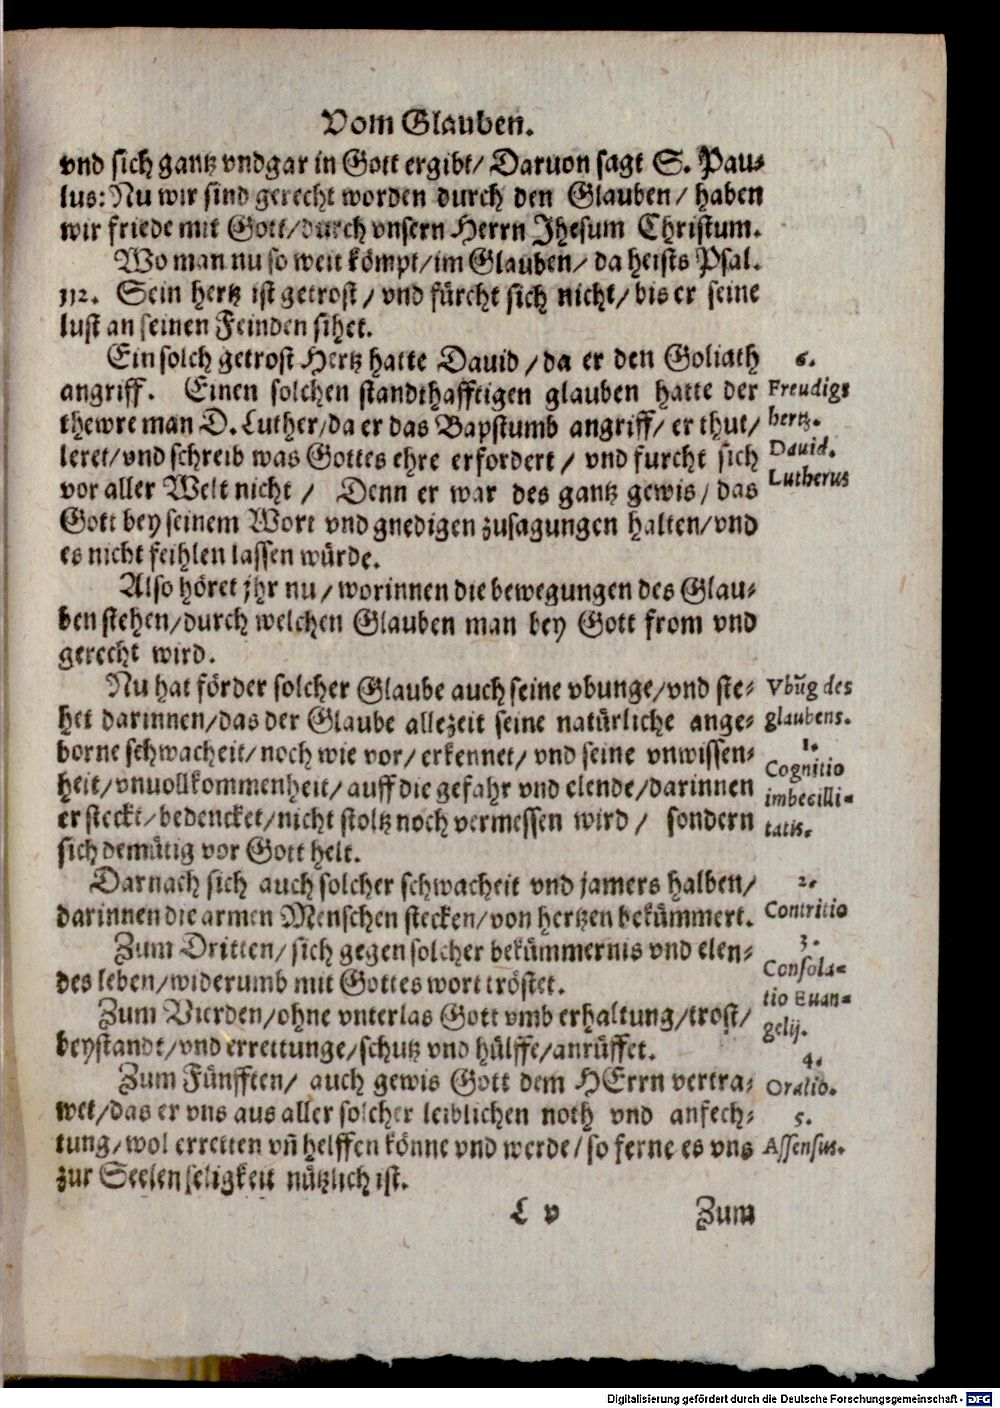 Vom Glauben.
vnd sich gantz vnd gar in Gott ergibt/ Daruon sagt S. Pau-
lus: Nu wir sind gerecht worden durch den Glauben/ haben
wir friede mit Gott/ durch vnsern Herrn Jhesum Christum.
Wo man nu so weit kömpt/ im Glauben/ da heists Psal.
112. Sein hertz ist getrost/ vnd fürcht sich nicht/ bis er seine
lust an seinen Feinden sihet.
Ein solch getrost Hertz hatte Dauid/ da er den Goliath
angriff. Einen solchen standthafftigen glauben hatte der
thewre man D. Luther/ da er das Bapstumb angriff/ er thut/
leret/ vnd schreib was Gottes ehre erfordert/ vnd furcht sich
vor aller Welt nicht/ Denn er war des gantz gewis/ das
Gott bey seinem Wort vnd gnedigen zusagungen halten/ vnd
es nicht feihlen lassen würde.
6.
Freudigs
hertz.
Dauid.
Lutherus
Also höret jhr nu/ worinnen die bewegungen des Glau-
ben stehen/ durch welchen Glauben man bey Gott from vnd
gerecht wird.
Nu hat förder solcher Glaube auch seine vbunge/ vnd ste-
het darinnen/ das der Glaube allezeit seine natürliche ange-
borne schwacheit/ noch wie vor/ erkennet/ vnd seine vnwissen-
heit/ vnuollkommenheit/ auff die gefahr vnd elende/ darinnen
er steckt/ bedencket/ nicht stoltz noch vermessen wird/ sondern
sich demütig vor Gott helt.
Vbūg des
glaubens.
1.
Cognitio
imbecilli-
tatis.
Darnach sich auch solcher schwacheit vnd jamers halben/
darinnen die armen Menschen stecken/ von hertzen bekümmert.
2.
Contritio
Zum Dritten/ sich gegen solcher bekümmernis vnd elen-
des leben/ widerumb mit Gottes wort tröstet.
3.
Consola-
tio Euan-
gelij.
Zum Vierden/ ohne vnterlas Gott vmb erhaltung/ trost/
beystandt/ vnd errettunge/ schutz vnd hülffe/ anrüffet.
4.
Oratio.
Zum Fünfften/ auch gewis Gott dem HErrn vertra-
wet/ das er vns aus aller solcher leiblichen noth vnd anfech-
tung/ wol erretten vñ helffen könne vnd werde/ so ferne es vns
zur Seelen seligkeit nützlich ist.
5.
Assensus.
L v Zum
Digitalisierung gefördert durch die Deutsche Forschungsgemeinschaft - DFG